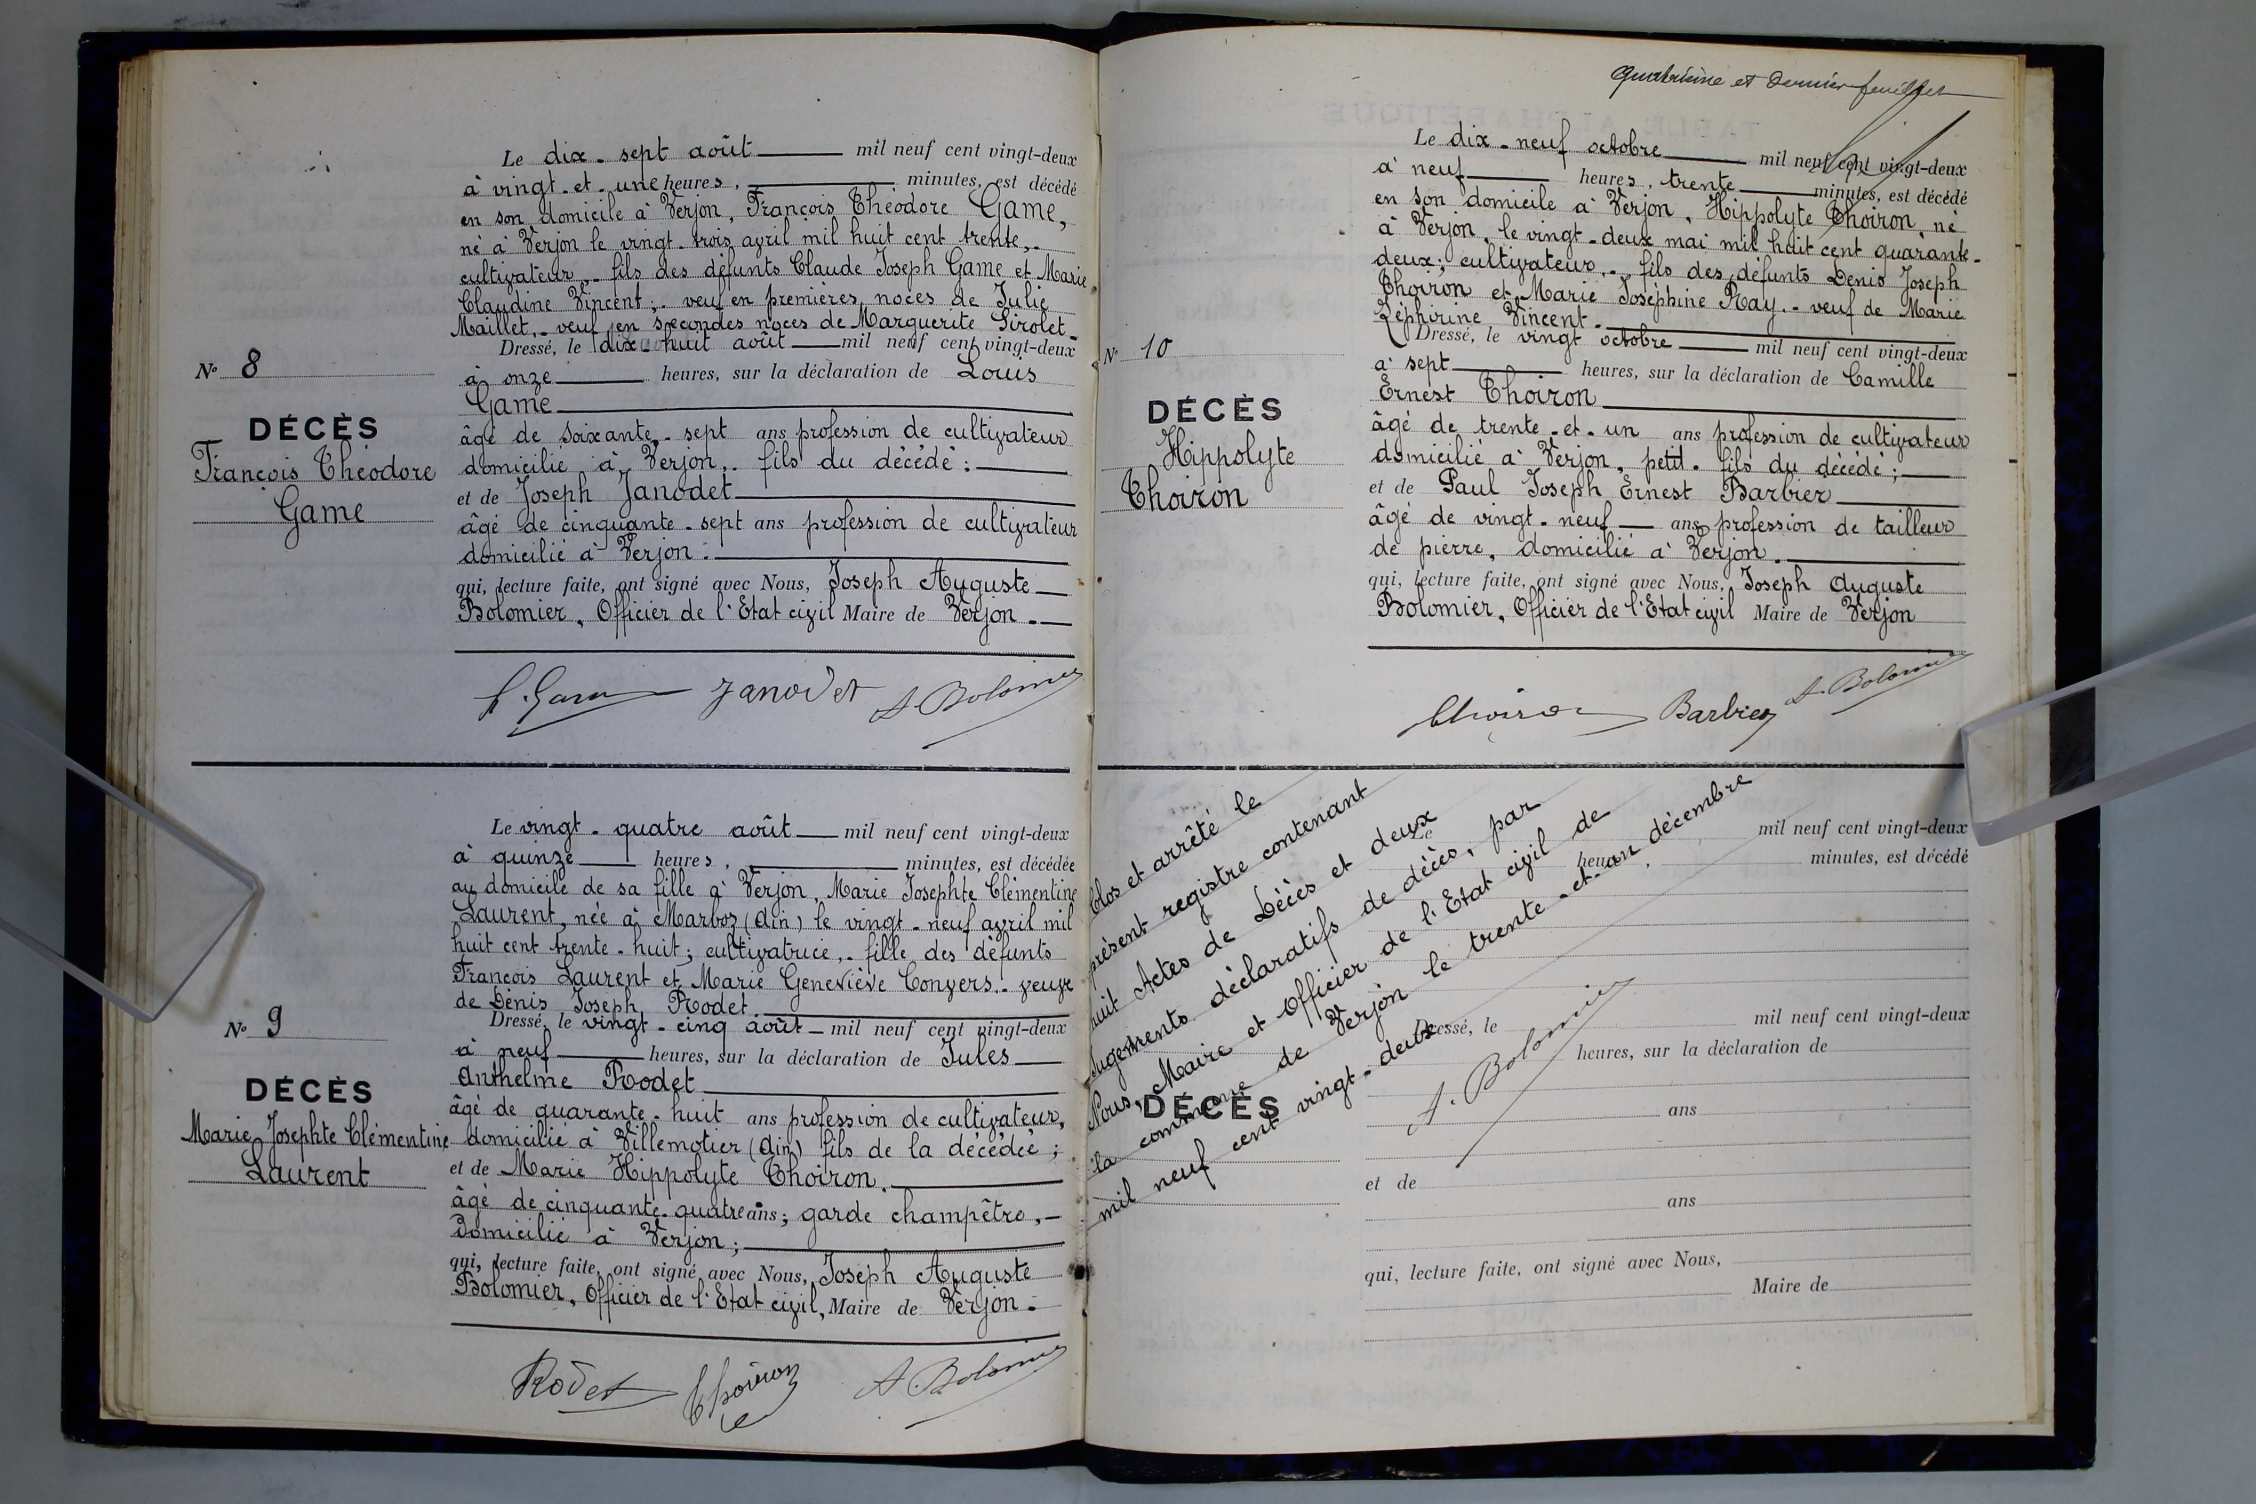 Le dix-sept août mil neuf cent vingt-deux
à vingt-et-une heures, minutes, est décédé
en son domicile à Verjon, François Théodore Game,
né à Verjon le vingt-trois avril mil huit cent trente,-
cultivateur,- fils des défunts Claude Joseph Game et Marie
Claudine Vincent;- veuf en premières noces de Julie
Maillet,- veuf en secondes noces de Marguerite Sirolet-
Dressé, le dix huit août mil neuf cent vingt-deux
à onze heures, sur la déclaration de Louis
Game
âgé de soixante-sept ans profession de cultivateur
domicilié à Verjon,- fils du décédé;
et de Joseph Janodet
âgé de cinquante-sept ans profession de cultivateur
domicilié à Verjon;
qui, lecture faite, ont signé avec Nous, Joseph Auguste
Bolomier, Officier de l'Etat civil Maire de Verjon.-
No 8
DÉCÈS
François Théodore
Game
Janodet A. Bolomier
Le vingt-quatre août mil neuf cent vingt-deux
à quinze heures, minutes, est décédée
au domicile de sa fille à Verjon, Marie Josephte Clémentine
Laurent, née à Marboz (Ain) le vingt-neuf avril mil
huit cent trente-huit; cultivatrice,- fille des défunts
François Laurent et Marie Geneviève Convers.- veuve
de Denis Joseph Rodet.
Dressé, le vingt-cinq août mil neuf cent vingt-deux
à neuf heures, sur la déclaration de Jules
Anthelme Rodet
âgé de quarante-huit ans profession de cultivateur,
domicilié à Villemotier (Ain) fils de la décédée;
et de Marie Hippolyte Thoiron.
âgé de cinquante-quatre ans; garde champêtre,-
domicilié à Verjon;
qui, lecture faite, ont signé avec Nous, Joseph Auguste
Bolomier, Officier de l'Etat civil, Maire de Verjon.-
No 9
DÉCÈS
Marie Josephte Clémentine
Laurent
Rodet Thoiron A. Bolomier
Quatrième et dernier feuillet
Le dix-neuf octobre mil neuf cent vingt-deux
à neuf heures, trente minutes, est décédé
en son domicile à Verjon, Hippolyte Thoiron, né
à Verjon, le vingt-deux mai mil huit cent quarante-
deux; cultivateur,- fils des défunts Denis Joseph
Thoiron et Marie Joséphine Ray.- veuf de Marie
Zéphirine Vincent.-
Dressé, le vingt octobre mil neuf cent vingt-deux
à sept heures, sur la déclaration de Camille
Ernest Thoiron
âgé de trente-et-un ans profession de cultivateur
domicilié à Verjon, petit-fils du décédé;
et de Paul Joseph Ernest Barbier
âgé de vingt-neuf ans profession de tailleur
de pierre, domicilié à Verjon.
qui, lecture faite, ont signé avec Nous, Joseph Auguste
Bolomier, Officier de l'Etat civil Maire de Verjon
No 10
DÉCÈS
Hippolyte
Thoiron
Thoiron Barbier A. Bolomier
Clos et arrêté le
présent registre contenant
huit Actes de Décès et deux
Jugements déclaratifs de décès, par
Nous, Maire et Officier de l'Etat civil de
la commune de Verjon le trente-et-un décembre
mil neuf cent vingt-deux.
A. Bolomier
Le mil neuf cent vingt-deux
heures, minutes, est décédé
Dressé, le mil neuf cent vingt-deux
heures, sur la déclaration de
DÉCÈS
ans
et de
ans
qui, lecture faite, ont signé avec Nous,
Maire de